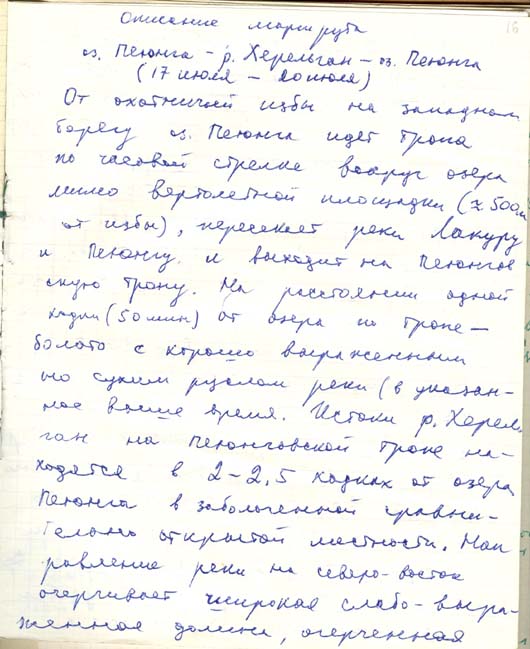 16
Описание маршрута
оз. Пеюнга – р. Херельган – оз. Пеюнга
(17 июля – 20 июля)
От охотничьей избы на западном
берегу оз. Пеюнга идет тропа
по часовой стрелке вокруг озера
мимо вертолетной площадки (≈ 500м
от избы), пересекает реки Лакуру
и Пеюнгу и выходит на Пеюнгов
скую тропу. На расстоянии одной
ходки (50 мин) от озера по тропе –
болото с хорошо выраженным
но сухим руслом реки (в указан-
ное выше время. Истоки р. Херель
ган на Пеюнговской тропе на-
ходятся в 2–2,5 ходках от озера
Пеюнга в заболоченной сравни-
тельно открытой местности. Нап
равление реки на северо-восток
очерчивает широкая слабо-выра-
женная долина, очерченная